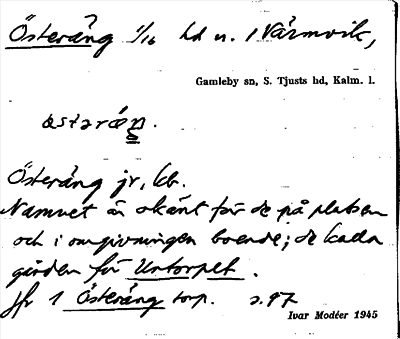 Österäng 1/16 hd u. 1 Värmvik,
Gamleby sn, S. Tjusts hd, Kalm. l.
östəräŋ.
Österäng jr, kb.
Namnet är okänt för de på platsen
och i omgivningen boende; de kalla
gården för Untorpet.
Jfr 1 Österäng torp. s. 97
Ivar Modéer 1945